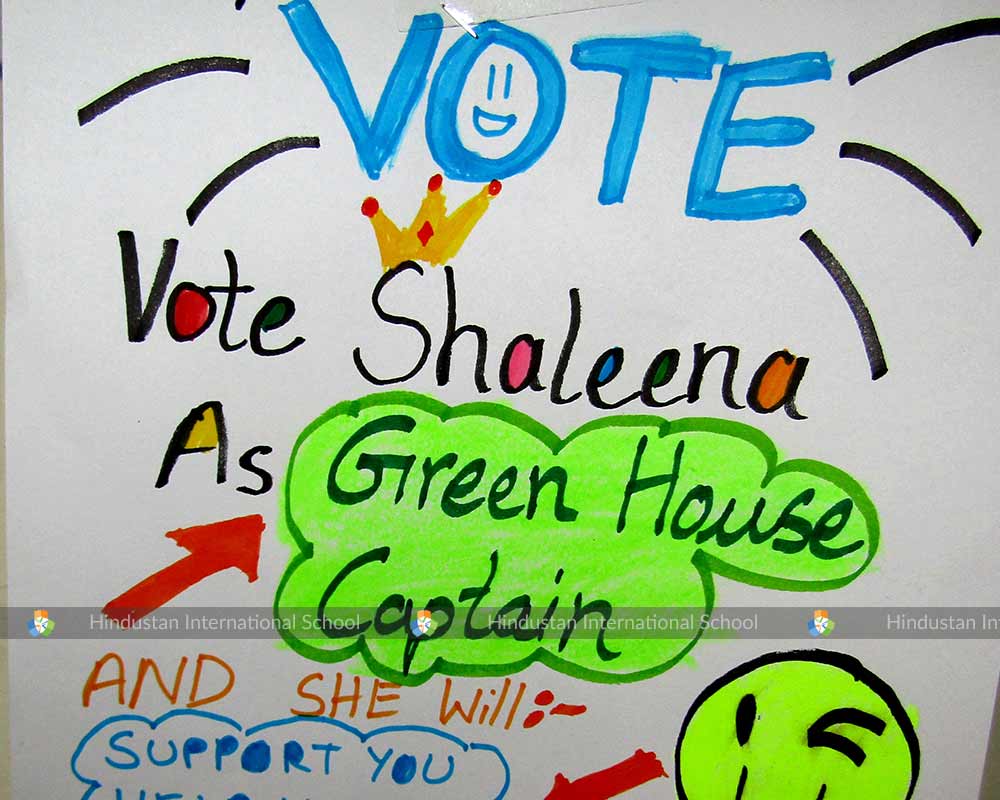 VOTE
Vote Shaleena
As Green House
Captain
Hindustan International School Hindustan International School Hindustan In
AND SHE Will:-
SUPPORT YOU